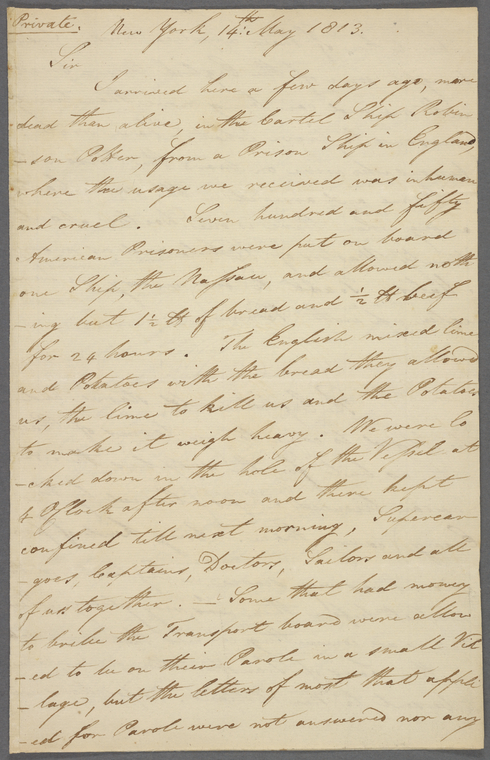 Private. New York, 14th. May 1813.
Sir
I arrived here a few days ago, more
dead than alive, in the Cartel Ship Robin
-son Potter, from a Prison Ship in England,
where the usage we received was inhuman
and cruel. Seven hundred and fifty
American Prisoners were put on board
one Ship, the Nassau, and allowed noth
-ing but 1½ ℔ of bread and ½ ℔ beef
for 24 hours. The English mixed lime
and Potatoes with the bread they allowed
us, the lime to kill us and the Potatoes
to make it weigh heavy. We were lo
-cked down in the hole of the Vessel at
4 O'Clock after noon and there kept
confined till next morning, Supercar
-goes, Captains, Doctors, Sailors and all
of us together. — Some that had money
to bribe the Transport board were allow
-ed to be on their Parole in a small Vil
-lage, but the letters of most that appli
-ed for Parole were not answered nor any